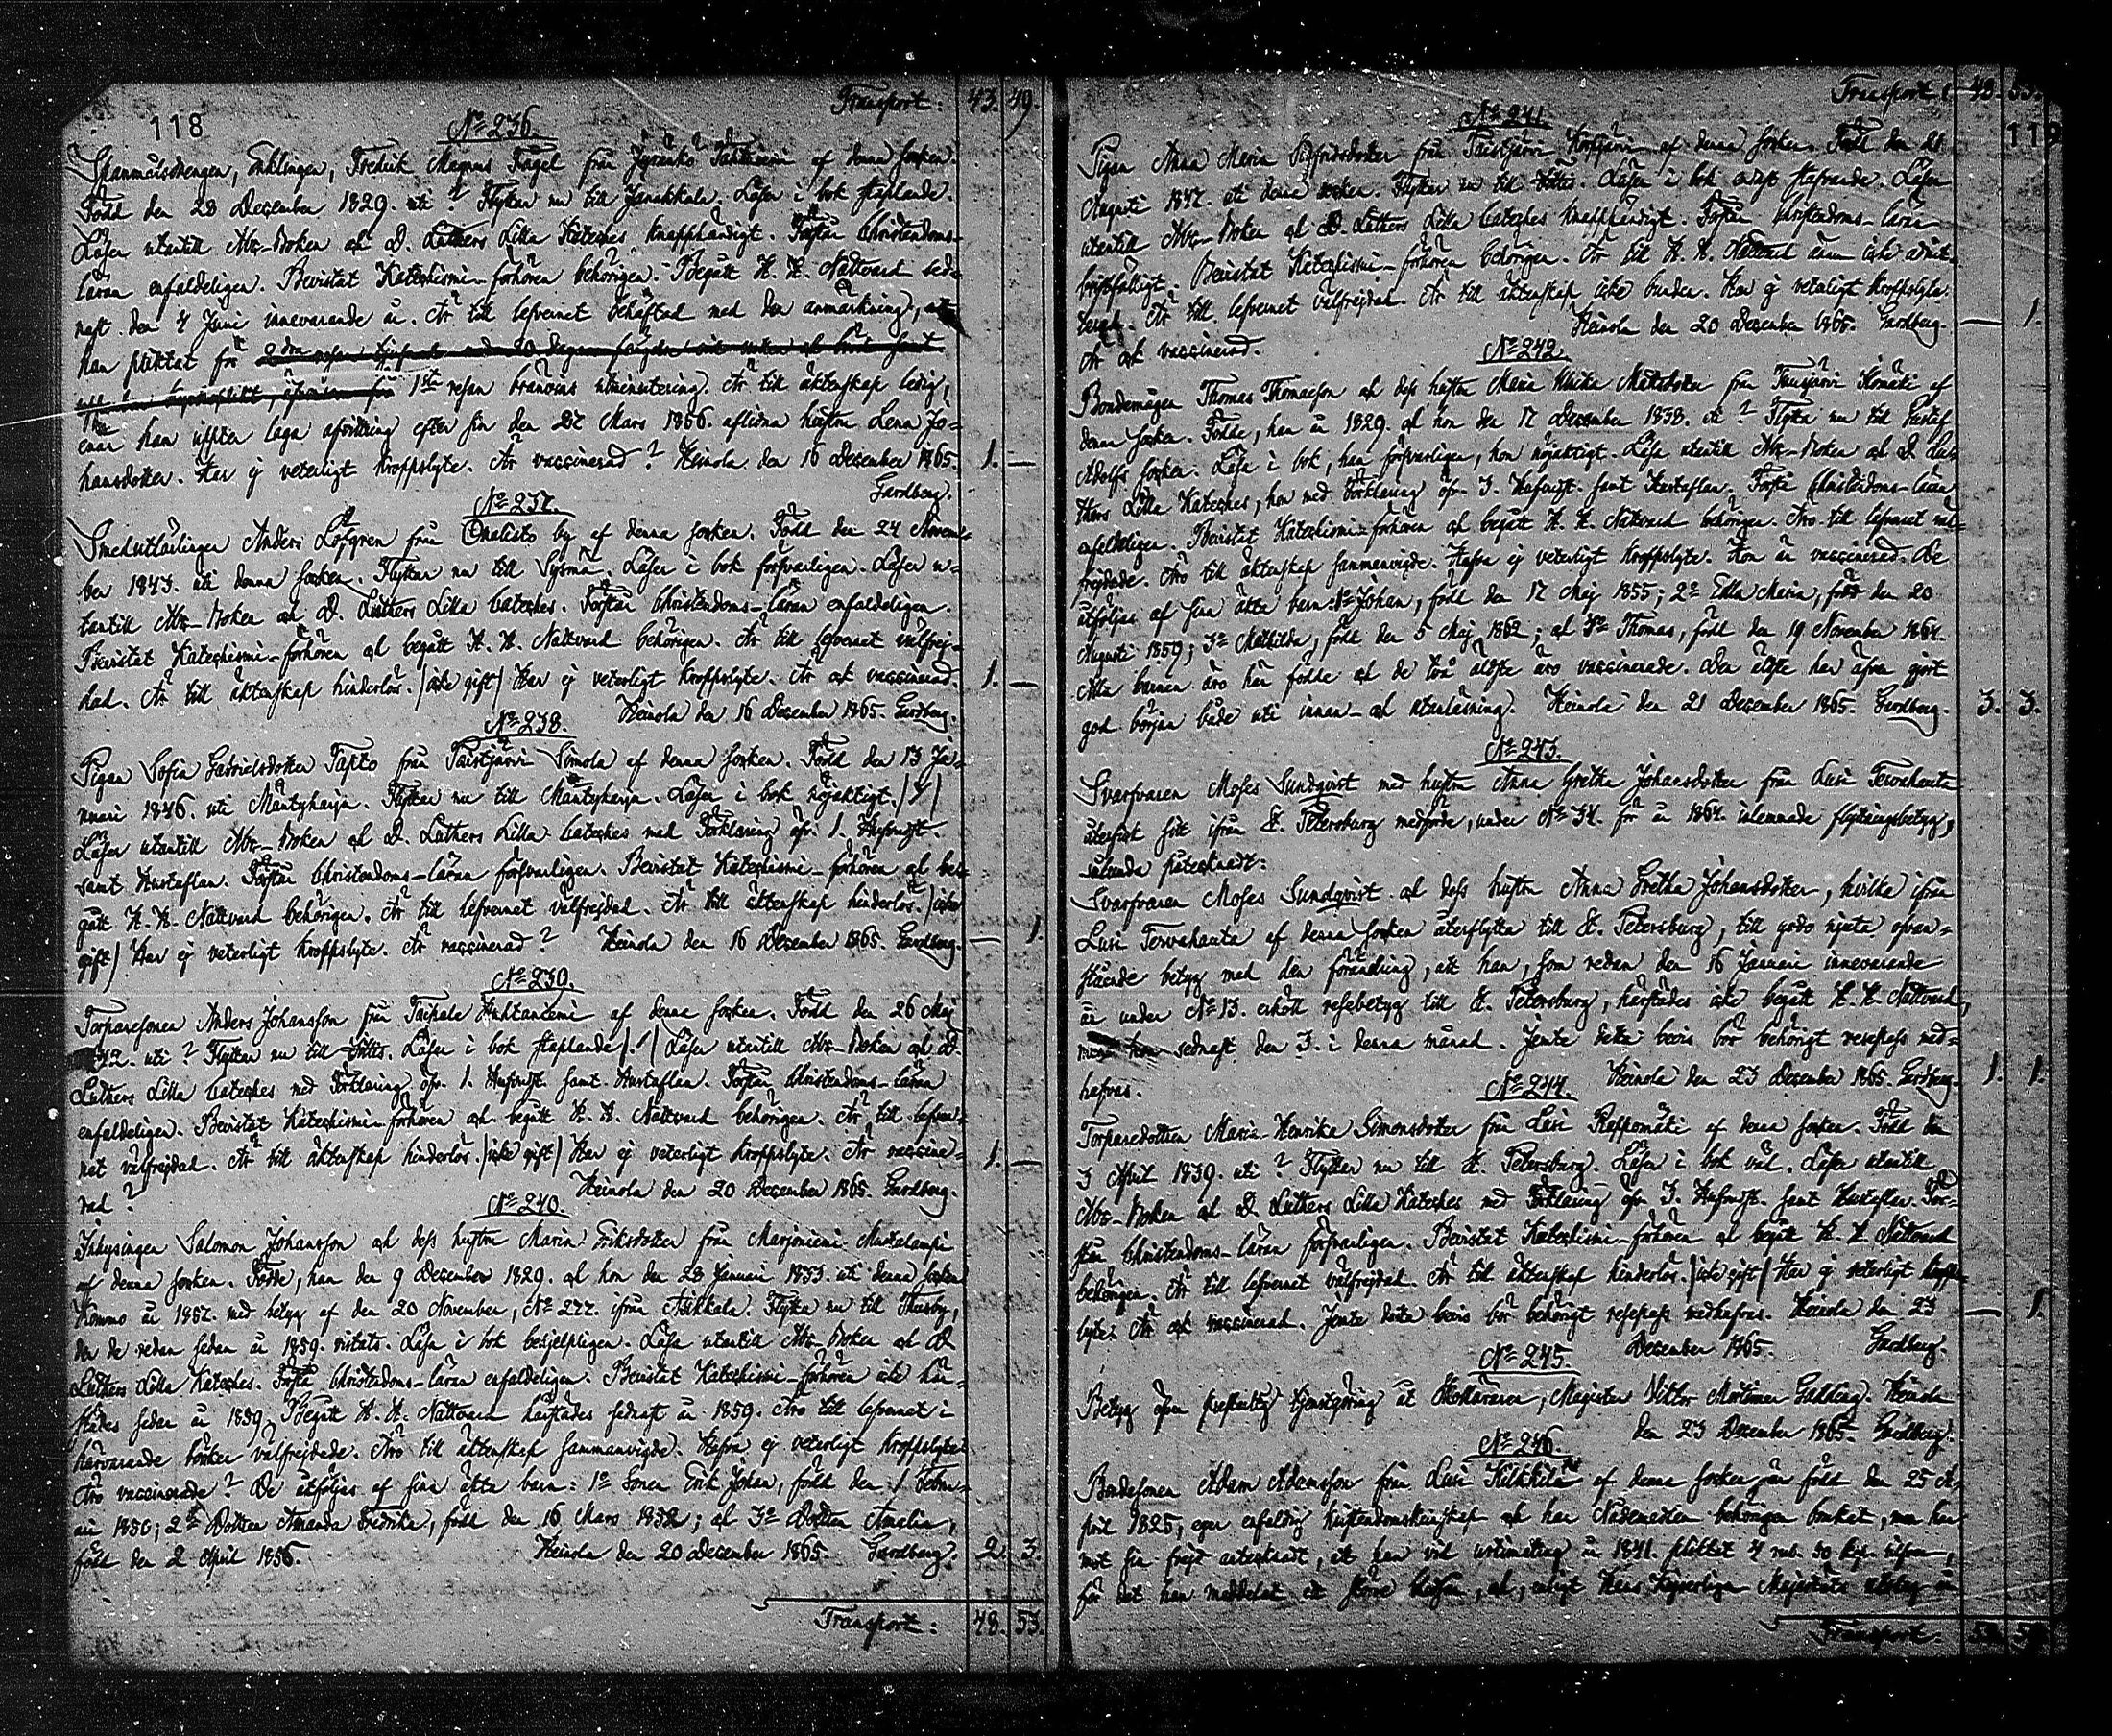 118
Transport: 43. 49.
No 236.
Skanmästdrengen, Enklingen, Fredrik Magnus Fagel från Jyränkö af denna socken.
Född den 28 December 1829. uti ? Flyttar nu till Janakkala. Läser i bok staplande.
Läser utantill Abc-Boken och D. Luthers Lilla Kateches knapphändigt. Förstår Christendoms-
läran enfaldeligen. Bevistat Katechismi-förhören behörigen. Begått H. H. Nattvard sed-
nast den 4 Juni innevarande år. Är till lefvernet behäftad med den anmärkning, att
han pliktat för
1sta resan bränvins utminutering. Är till äktenskap ledig,
enär han uppter laga afvittring efter sin den 27 Mars 1856. aflidna hustru Lena Jo-
hansdotter. Har ej veterligt kroppslyte. Är vaccinerad ? Heinola den 16 December 1865. 1. —
Gardberg.
No 237.
Smedslärlingen Anders Löfgren från Onalisto by af denna socken. Född den 24 Novem-
ber 1843. uti denna socken. Flyttar nu till Sysmä. Läser i bok försvarligen. Läser u-
tantill Abc-Boken och D. Luthers Lilla Cateches. Förstår Christendoms-läran enfaldeligen.
Bevistat Katechismi-förhören och begått H. H. Nattvard behörigen. Är till lefvernet välfrej-
dad. Är till äktenskap hinderlös. /icke gift/ Har ej veterligt kroppslyte. Är ock vaccinerad. 1. —
Heinola den 16 December 1865. Gardberg.
No 238.
Pigan Sofia Gabrielsdotter Tapio från Paistjärvi Simola af denna socken. Född den 13 Ja-
nuari 1846. uti Mäntyharju. Flyttar nu till Mäntyharju. Läser i bok nöjaktigt.
Läser utantill Abc-Boken och D. Luthers Lilla Cateches med Förklaring öfv. 1. Hufvudst.
samt Hustaflan. Förstår Christendoms-läran försvarligen. Bevistat Katechismi-förhören och be-
gått H. H. Nattvard behörigen. Är till lefvernet välfrejdad. Är till äktenskap hinderlös. /icke
gift/ Har ej veterligt kroppslyte. Är vaccinerad ? Heinola den 16 December 1865. Gardberg. — 1.
No 239.
Torparesonen Anders Johansson från Taipale Huhtaniemi af denna socken. Född den 26 Maj
42. uti ? Flyttar nu till Iittis. Läser i bok staplande. Läser utantill Abc-Boken och D.
Luthers Lilla Cateches med Förklaring öfv. 1. Hufvudst. samt Hustaflan. Förstår Christendoms-läran
enfaldeligen. Bevistat Katechismi-förhören och begått H. H. Nattvard behörigen. Är till lefver-
net välfrejdad. Är till äktenskap hinderlös. /icke gift/ Har ej veterligt kroppslyte. Är vaccine- 1. —
rad ? Heinola den 20 December 1865. Gardberg.
No 240.
Inhysingen Salomon Johansson och dess hustru Maria Eriksdotter från Marjoniemi Mustalampi
af denna socken. Födde, han den 9 December 1829. och hon den 28 Januari 1833. uti denna socken
Komne år 1857. med betyg af den 20 November, No 277. ifrån Asikkala. Flytta nu till Thusby,
der de redan sedan år 1859. vistats. Läsa i bok besjelpligen. Läsa utantill Abc-Boken och D.
Luthers Lilla Kateches. Förstå Christendoms-läran enfaldeligen. Bevistat Katechismi-förhören icke här-
städes sedan år 1859. Begått H. H. Nattvard härstädes sednast år 1859. Äro till lefvernet i
härvarande böcker välfrejdade. Äro till äktenskap sammanvigde. Hafva ej veterligt kroppslyte.
Äro vaccinerade ? De åtföljas af sina äkta barn: 1o Sonen Erik Johan, född den 1 Febru-
ari 1850; 2o Dottren Amanda Fredrika, född den 16 Mars 1852; och 3o Dottren Amalia,
född den 2 April 1856. Heinola den 20 December 1865. Gardberg. 2. 3.
Transport: 48. 53.
Transport: 48. 53.
119
No 241.
Pigan Anna Maria Sigfridsdotter från Paistjärvi af denna socken. Född den 21
Augusti 1847. uti denna socken. Flyttar nu till Iittis. Läser i bok svagt stafvande. Läser
utantill Abc-Boken och D. Luthers Lilla Cateches knapphändigt. Förstår Christendoms-läran
bristfälligt. Bevistat Katechismi-förhören behörigen. Är till H. H. Nattvard ännu icke admit-
terad. Är till lefvernet välfrejdad. Är till äktenskap icke bunden. Har ej veterligt kroppslyte. — 1.
Är ock vaccinerad. Heinola den 20 December 1865. Gardberg.
No 242.
Bondemågen Thomas Thomasson och dess hustru Maria Ulrika Matsdotter från Tausjärvi Komäki af
denna socken. Födde, han år 1829. och hon den 17 December 1838. uti ? Flytta nu till Gustaf
Adolfs socken. Läsa i bok, han försvarligen, hon nöjaktigt. Läsa utantill Abc-Boken och D. Lu-
thers Lilla Kateches, hon med Förklaring öfv. 3. Hufvudst. samt Hustaflan. Förstå Christendoms-läran
enfaldeligen. Bevistat Katechismi-förhören och begått H. H. Nattvard behörigen. Äro till lefvernet väl-
frejdade. Äro till äktenskap sammanvigde. Hafva ej veterligt kroppslyte. Hon är vaccinerad. De
åtföljas af sina äkta barn: 1o Johan, född den 17 Maj 1855; 2o Edla Maria, född den 20
Augusti 1859; 3o Mathilda, född den 5 Maj 1862; och 4o Thomas, född den 19 November 1864.
Alla barnen äro här födde och de två äldste äro vaccinerade. Den äldste har äfven gjort
god början både uti innan- och utanläsning. Heinola den 21 December 1865. Gardberg. 3. 3.
No 243.
Svarfvaren Moses Sundqvist med hustru Anna Gretha Johansdotter från Lusi Tervahauta
återfick sitt ifrån St. Petersburg medförde, under No 34. för år 1864. inlemnade flyttningsbetyg,
sålunda påtecknadt:
Svarfvaren Moses Sundqvist och dess hustru Anna Gretha Johansdotter, hvilka ifrån
Lusi Tervahauta af denna socken återflytta till St. Petersburg, till godo njuta ofvan-
stående betyg med den förändring, att han, som redan den 16 Januari innevarande
år under No 13. erhöll resebetyg till St. Petersburg, härstädes icke begått H. H. Nattvard,
hon sednast den 3. i denna månad. Jemte detta bevis bör behörigt resepass med-
hafvas. Heinola den 23 December 1865. Gardberg. 1. 1.
No 244.
Torparedottren Maria Henrika Simonsdotter från Lusi Rappomäki af denna socken. Född den
3 April 1839. uti ? Flyttar nu till St. Petersburg. Läser i bok väl. Läser utantill
Abc-Boken och D. Luthers Lilla Kateches med Förklaring öfv. 3. Hufvudst. samt Hustaflan. För-
står Christendoms-läran försvarligen. Bevistat Katechismi-förhören och begått H. H. Nattvard
behörigen. Är till lefvernet välfrejdad. Är till äktenskap hinderlös. /icke gift/ Har ej veterligt kropps-
lyte. Är ock vaccinerad. Jemte detta bevis bör behörigt resepass medhafvas. Heinola den 23 — 1.
December 1865. Gardberg.
No 245.
Betyg öfver presterlig tjenstgöring åt Magister Viktor Mortimer Gahlberg. Heinola
den 23 December 1865. Gardberg.
No 246.
Bondesonen Adam Adamsson från Lusi Kilkkilä af denna socken är född den 25 A-
pril 1825, eger enfaldig kristendomskunskap och har Nådemedlen behörigen brukat, men har
mot sin frejd antecknadt, att han vid urtimating år 1841. pliktat 4 rub. 50 kop. silfver,
för det han meddelat en och, enligt Hans Kejserliga Majestäts utslag
Transport: